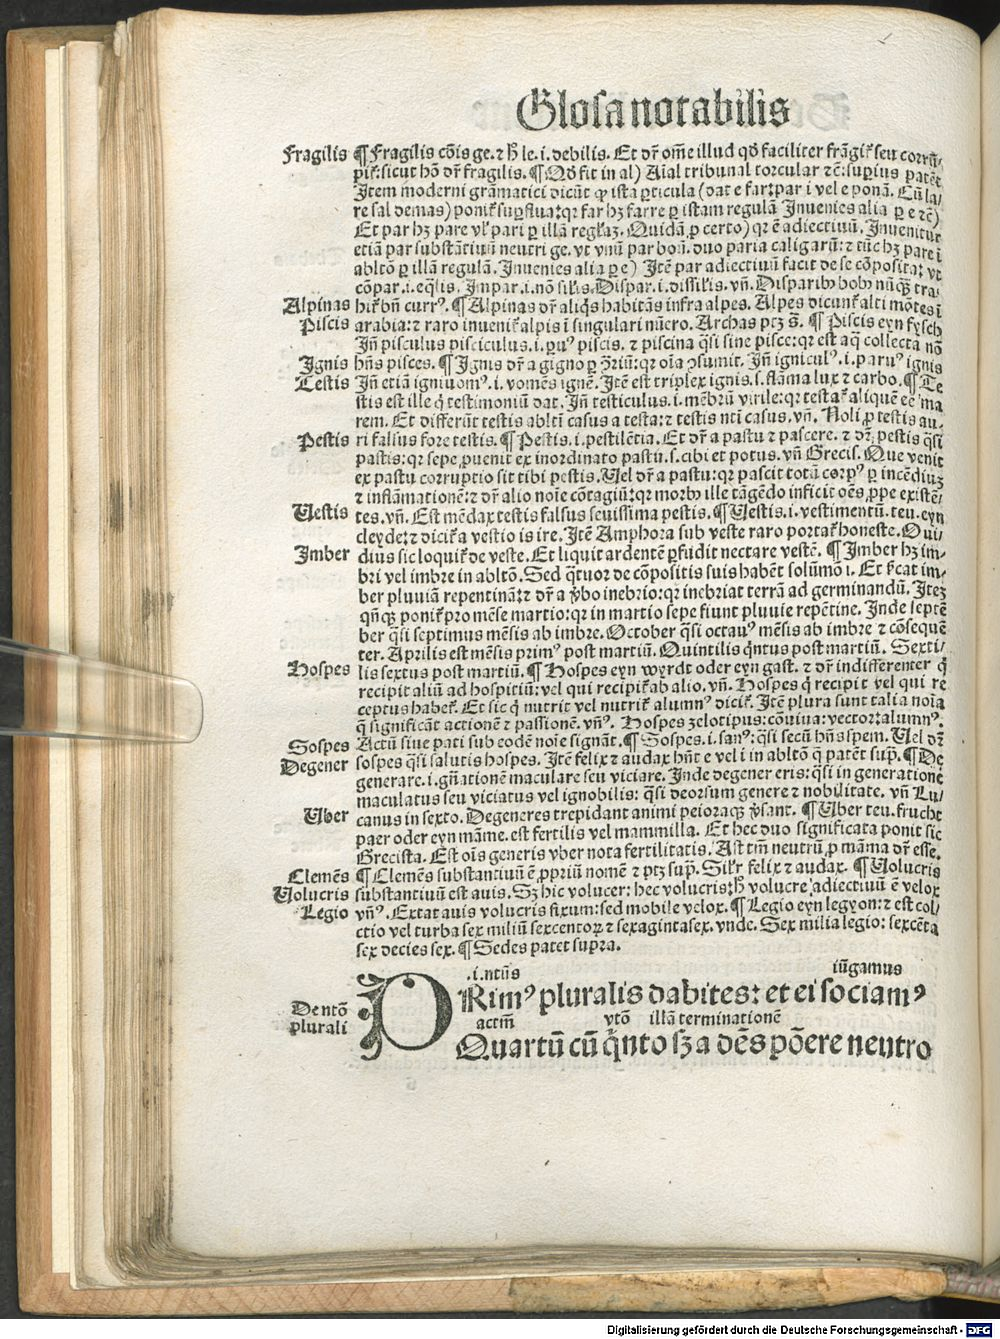 Glosa notabilis
Fragilis ¶ Fragilis cõis ge. ⁊ ħ le. i. debilis. Et dr̃ om̃e illud qď faciliter frãgit̃ seu corrũ⸗
pit̃: sicut hõ dr̃ fragilis. ¶ Qď fit in al) Aial tribunal torcular ⁊c̃: supius patet
Item moderni grãmatici dicũt ꝙ ista pticula (dat e far: par i vel e ponã. Cũ la⸗
re sal demas) ponit̃ supflua: qr far hꝫ farre p istam regulã Inuenies alia p e ⁊c̃)
Et par hꝫ pare vľ pari p illã reglaꝫ. Quidã ꝓ certo) qr ẽ adiectiuũ. Inuenitur
etiã par substãtiuũ neutri ge. vt vnũ par bonũ. duo paria caligarũ: ⁊ tũc hꝫ pare ĩ
abltõ p illã regulã. Inuenies alia p e) Itẽ par adiectiuũ facit de se cõposita: vt
cõpar. i. eq̃lis. Impar. i. nõ siľis. Dispar. i. dissiľis. vñ. Disparibꝰ bobꝰ nũqꝫ tra⸗
Alpinas hit̃ bñ currꝰ. ¶ Alpinas dr̃ aliq̃s habitãs infra alpes. Alpes dicunt̃ alti mõtes ĩ
Piscis arabia: ⁊ raro inuenit̃ alpis ĩ singulari nũero. Archas ptꝫ s̃. ¶ Piscis eyn fysch
Iñ pisculus pisciculus. i. puꝰ piscis. ⁊ piscina q̃si sine pisce: qr est aq̃ collecta nõ
Ignis hñs pisces. ¶ Ignis dr̃ a gigno p ɔ̃riũ: qr oĩa ɔsumit. Iñ igniculꝰ. i. paruꝰ ignis
Testis Iñ etiã igniuomꝰ. i. vomẽs ignẽ. Itẽ est triplex ignis. s. flãma lux ⁊ carbo. ¶ Te
stis est ille q̃ testimoniũ dat. Iñ testiculus. i. mẽbrũ virile: qr testat̃ aliquẽ eẽ ma
rem. Et differũt testis ablti casus a testa: ⁊ testis nti casus. vñ. Noli ꝓ testis au⸗
Pestis ri falsus fore testis. ¶ Pestis. i. pestilẽtia. Et dr̃ a pastu ⁊ pascere. ⁊ dr̃ pestis q̃si
pastis: qr sepe ꝓuenit ex inordinato pastu. s. cibi et potus. vñ Grecis. Que venit
ex pastu corruptio sit tibi pestis. Uel dr̃ a pastu: qr pascit totũ corpꝰ p incẽdiuꝫ
⁊ inflãmationẽ: ⁊ dr̃ alio noĩe cõtagiũ: qr morbꝰ ille tãgẽdo inficit oẽs ꝓpe existẽ⸗
Uestis tes. vñ. Est mẽdax testis falsus seuissima pestis. ¶ Uestis. i. vestimentũ. teu. eyn
cleyde: ⁊ dicit̃ a vestio is ire. Itẽ Amphora sub veste raro portat̃ honeste. Oui⸗
Imber dius sic loquit̃ de veste. Et liquit ardentẽ pfudit nectare vestẽ. ¶ Imber hꝫ im⸗
bri vel imbre in abltõ. Sed q̃tuor de cõpositis suis habẽt solũmõ i. Et s̃cat im⸗
ber pluuiã repentinã: ⁊ dr̃ a ṽbo inebrio: qr inebriat terrã ad germinandũ. Iteꝫ
qñqꝫ ponit̃ pro mẽse martio: qr in martio sepe fiunt pluuie repẽtine. Inde septẽ
ber q̃si septimus mẽsis ab imbre. October q̃si octauꝰ mẽsis ab imbre ⁊ cõsequẽ
ter. Aprilis est mẽsis primꝰ post martiũ. Quintilis q̃ntus post martiũ. Sexti⸗
Hospes lis sextus post martiũ. ¶ Hospes eyn wyrdt oder eyn gast. ⁊ dr̃ indifferenter q̃
recipit aliũ ad hospitiũ: vel qui recipit̃ ab alio. vñ. Hospes q̃ recipit vel qui re
ceptus habet̃. Et sic q̃ nutrit vel nutrit̃ alumnꝰ dicit̃. Itẽ plura sunt talia noĩa
q̃ significãt actionẽ ⁊ passionẽ. vñꝰ. Hospes zelotipus: cõuiua: vector: alumnꝰ.
Sospes Actũ siue pati sub eodẽ noĩe signãt. ¶ Sospes. i. sanꝰ: q̃si secũ hñs spem. Uel dr̃
Degener sospes q̃si salutis hospes. Itẽ felix ⁊ audax hñt e vel i in abltõ q̃ patẽt sup̃. ¶ De
generare. i. gñationẽ maculare seu viciare. Inde degener eris: q̃si in generationẽ
maculatus seu viciatus vel ignobilis: q̃si deorsum genere ⁊ nobilitate. vñ Lu⸗
Uber canus in sexto. Degeneres trepidant animi peioraqꝫ ṽsant. ¶ Uber teu. frucht
paer oder eyn mãme. est fertilis vel mammilla. Et hec duo significata ponit sic
Grecista. Est oĩs generis vber nota fertilitatis. Ast tm̃ neutrũ ꝓ mãma dr̃ esse.
Clemẽs ¶ Clemẽs substantiuũ ẽ ꝓpriũ nomẽ ⁊ ptꝫ sup̃. Siľr felix ⁊ audax. ¶ Uolucris
Uolucris substantiuũ est auis. Sꝫ hic volucer: hec volucris: ħ volucre adiectiuũ ẽ velox
Legio vñꝰ. Extat auis volucris fixum: sed mobile velox. ¶ Legio eyn legyon: ⁊ est col⸗
ctio vel turba sex miliũ sexcentoꝝ ⁊ sexagintasex. vnde. Sex milia legio: sexcẽta
sex decies sex. ¶ Sedes patet supra.
.i. ntũs iũgamus
De ntõ plurali
PRimꝰ pluralis dabit es: et ei sociamꝰ
actm̃ vtõ illã terminationẽ
Quartũ cũ q̃nto sꝫ a dẽs põere neutro
Digitalisierung gefördert durch die Deutsche Forschungsgemeinschaft - DFG